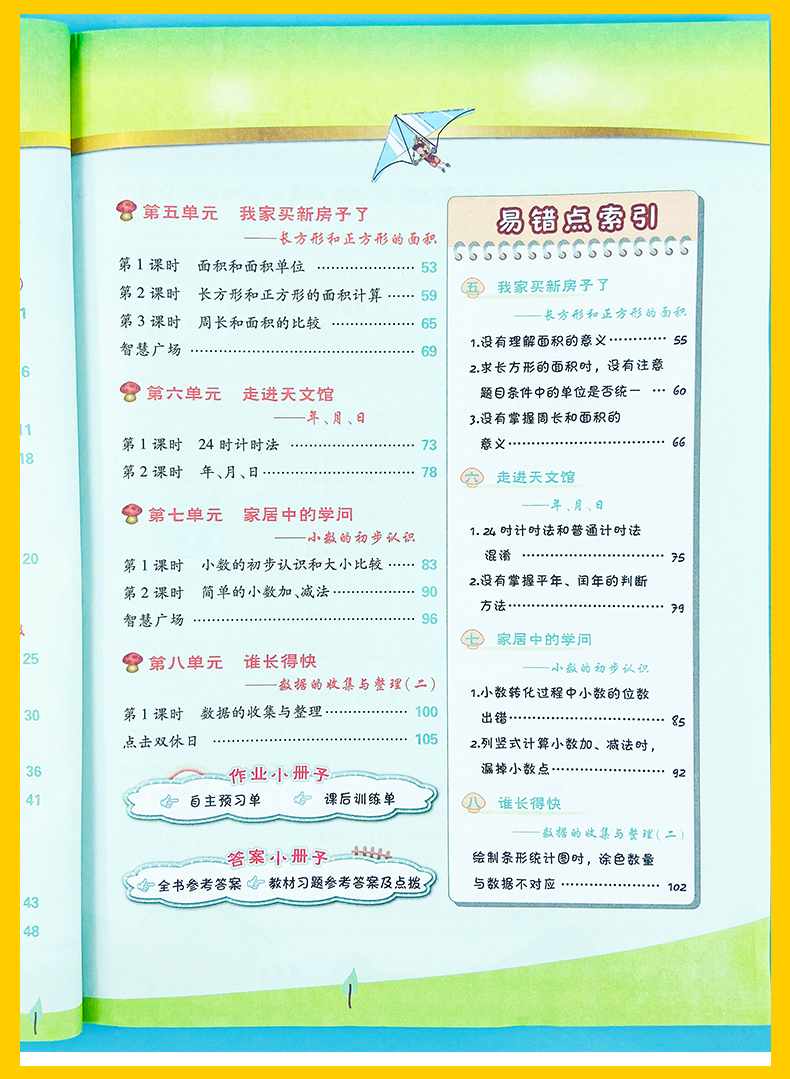 1
6
11
18
20
25
30
36
41
43
48
第五单元 我家买新房子了
——长方形和正方形的面积
第1课时 面积和面积单位 ………………… 53
第2课时 长方形和正方形的面积计算 …… 59
第3课时 周长和面积的比较 ……………… 65
智慧广场 ………………………………………… 69
第六单元 走进天文馆
——年、月、日
第1课时 24时计时法 ……………………… 73
第2课时 年、月、日 ………………………… 78
第七单元 家居中的学问
——小数的初步认识
第1课时 小数的初步认识和大小比较 …… 83
第2课时 简单的小数加、减法 …………… 90
智慧广场 ………………………………………… 96
第八单元 谁长得快
——数据的收集与整理(二)
第1课时 数据的收集与整理 ……………… 100
点击双休日 …………………………………… 105
作业小册子
自主预习单 课后训练单
答案小册子
全书参考答案 教材习题参考答案及点拨
易错点索引
五 我家买新房子了
——长方形和正方形的面积
1.没有理解面积的意义 ………… 55
2.求长方形的面积时,没有注意
题目条件中的单位是否统一 … 60
3.没有掌握周长和面积的
意义 …………………………… 66
六 走进天文馆
——年、月、日
1.24时计时法和普通计时法
混淆 ………………………… 75
2.没有掌握平年、闰年的判断
方法 …………………………… 79
七 家居中的学问
——小数的初步认识
1.小数转化过程中小数的位数
出错 …………………………… 85
2.列竖式计算小数加、减法时,
漏掉小数点 …………………… 92
八 谁长得快
——数据的收集与整理(二)
绘制条形统计图时,涂色数量
与数据不对应 ………………… 102